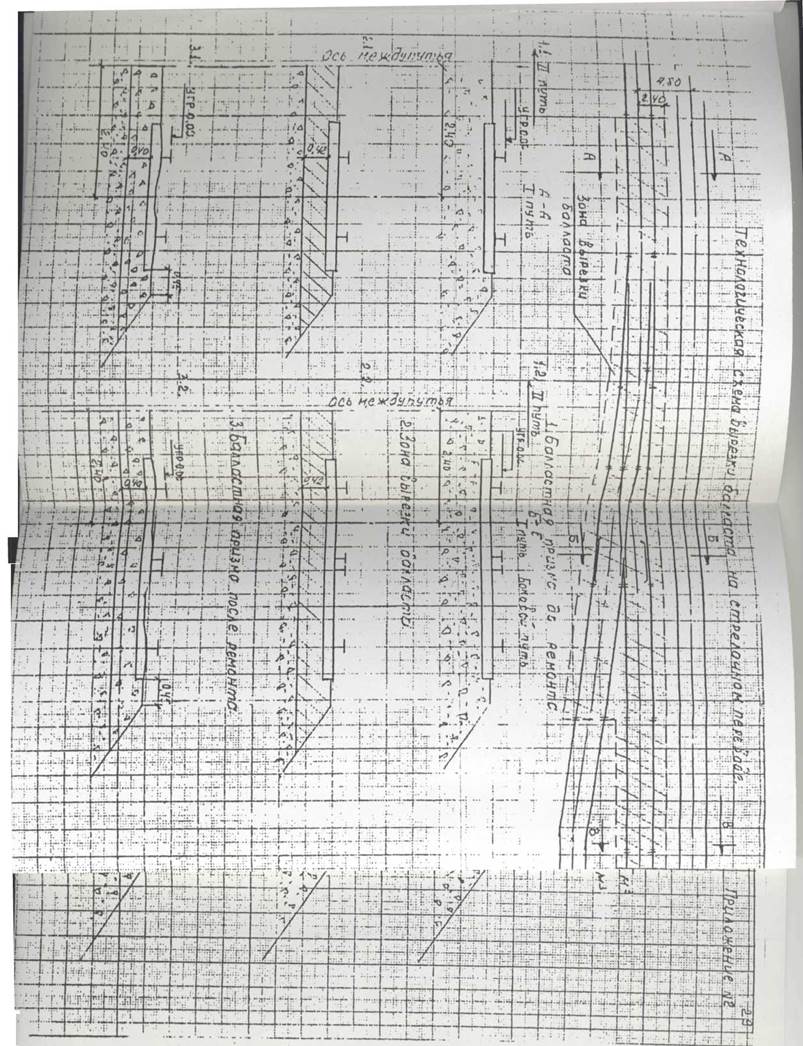 29
Приложение №2
Технологическая схема вырезки балласта на стрелочном переводе.
4,80
2,40
А
А
Б
Б
В
В
Зона вырезки
балласта
1. Балластная призма до ремонта
1.1.
II путь
А-А
I путь
1.2.
II путь
I путь
Боковой путь
УГР.0.00
УГР.0.00
2,40
Ось междупутья
Ось междупутья
2. Зона вырезки балласта
2.1.
2.2.
0,42
0,42
3. Балластная призма после ремонта.
3.1.
3.2.
УГР.0.00
УГР.0.00
0,40
0,40
2,40
2,40
0,45